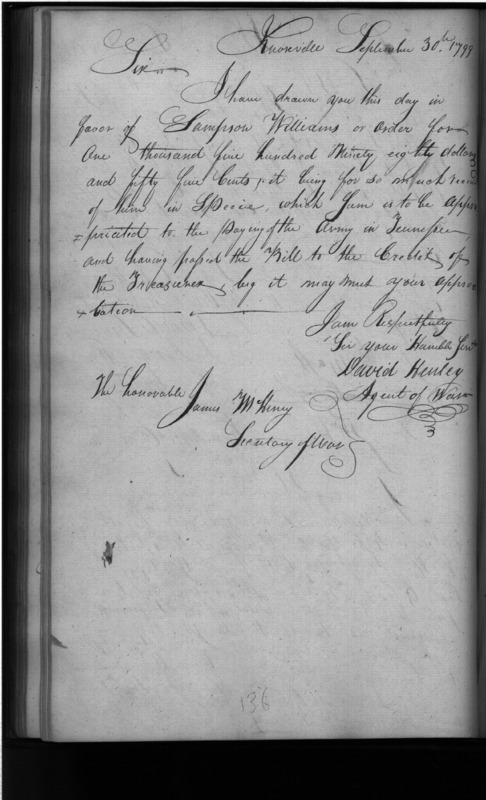 Knoxville September 30.th 1799
Sir
I have drawn you this day in
favor of Sampson Williams or order for
One thousand five hundred Ninety eight dollars
and fifty five Cents, it being for so much
of him in Specie, which Sum is to be appro
=priated to the Paying of the Army in Tennessee,
and having passed the Bill to the Credit of
the Treasurer, beg it may meet your appro
=bation
I am Respectfully
Sir your Humble Servt
David Henley
Agent of War
The honorable
James McHenry
Secretary of War
136